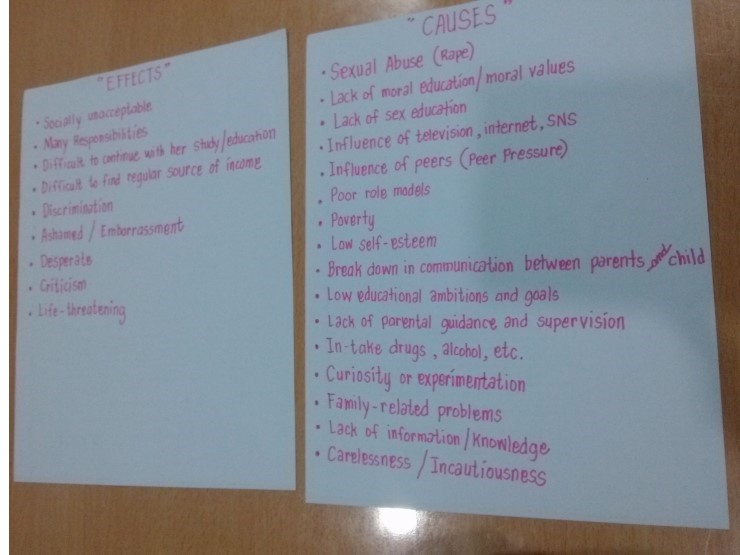 "EFFECTS"
• Socially unacceptable
• Many Responsibilities
• Difficult to continue with her study/education
• Difficult to find regular source of income
• Discrimination
• Ashamed / Embarrassment
• Desperate
• Criticism
• Life-threatening
"CAUSES"
• Sexual Abuse (Rape)
• Lack of moral education/moral values
• Lack of sex education
• Influence of television, internet, SNS
• Influence of peers (Peer Pressure)
• Poor role models
• Poverty
• Low self-esteem
• Break down in communication between parents and child
• Low educational ambitions and goals
• Lack of parental guidance and supervision
• In-take drugs, alcohol, etc.
• Curiosity or experimentation
• Family-related problems
• Lack of information/Knowledge
• Carelessness / Incautiousness